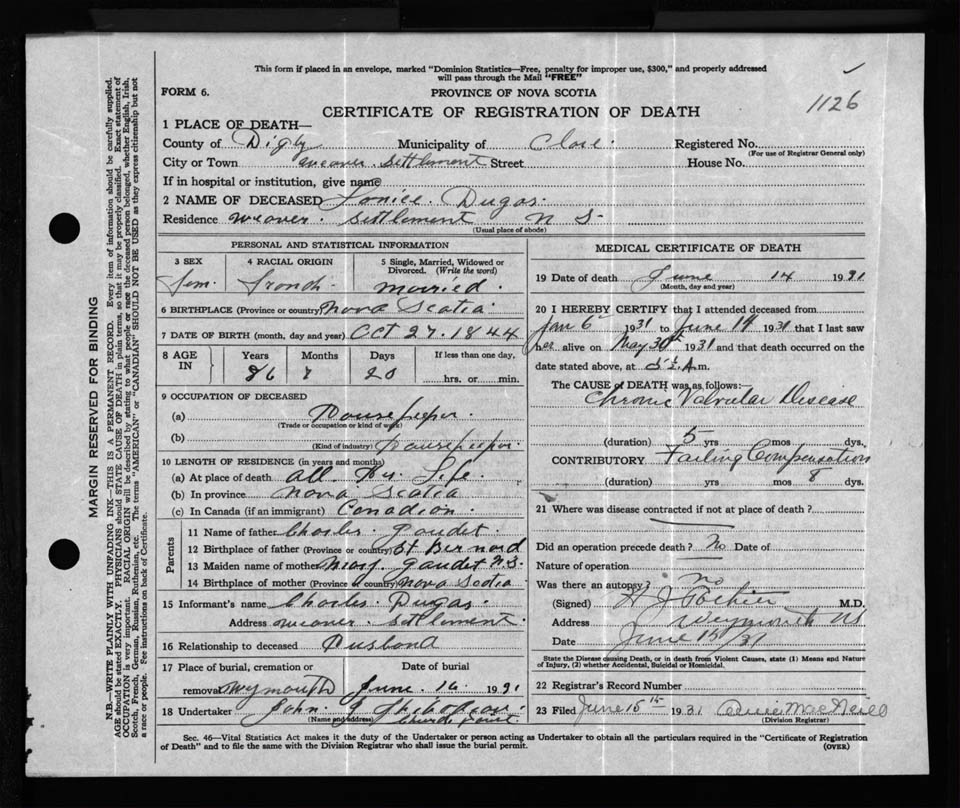 This form if placed in an envelope, marked "Dominion Statistics—Free, penalty for improper use, $300," and properly addressed
will pass through the Mail "FREE"
FORM 6. PROVINCE OF NOVA SCOTIA
CERTIFICATE OF REGISTRATION OF DEATH 1126
1 PLACE OF DEATH—
County of Digby Municipality of Clare. Registered No.
(For use of Registrar General only)
City or Town Weaver. Settlement Street House No.
If in hospital or institution, give name
2 NAME OF DECEASED Dugas.
Residence Weaver. Settlement N S-
(Usual place of abode)
PERSONAL AND STATISTICAL INFORMATION
3 SEX 4 RACIAL ORIGIN 5 Single, Married, Widowed or Divorced. (Write the word)
Fem. French. Married.
6 BIRTHPLACE (Province or country) Nova Scotia.
7 DATE OF BIRTH (month, day and year) Oct 27. 1844
8 AGE IN Years Months Days If less than one day,
86 7 20 hrs. or min.
9 OCCUPATION OF DECEASED
(a) Housekeeper.
(Trade or occupation or kind of work)
(b) Housekeeper.
(Kind of industry)
10 LENGTH OF RESIDENCE (in years and months)
(a) At place of death all. Her Life.
(b) In province Nova Scotia
(c) In Canada (if an immigrant) Canadian.
Parents
11 Name of father Charles. Gaudet.
12 Birthplace of father (Province or country) St Bernard
13 Maiden name of mother Gaudet N.S.
14 Birthplace of mother (Province or country) Nova Scotia
15 Informant's name Charles. Dugas.
Address Weaver. Settlement.
16 Relationship to deceased Husband
17 Place of burial, cremation or Date of burial
removal Weymouth June. 16 1931
18 Undertaker John.
(Name and address) Church Point.
MEDICAL CERTIFICATE OF DEATH
19 Date of death June 14 1931
(Month, day and year)
20 I HEREBY CERTIFY that I attended deceased from
Jan 6 1931 to June 14 1931 that I last saw
her alive on May 30th 1931 and that death occurred on the
date stated above, at 5 A.m.
The CAUSE of DEATH was as follows:
Chronic Valvular Disease
(duration) 5 yrs mos dys.
CONTRIBUTORY Failing Compensation
(duration) yrs mos 8 dys.
21 Where was disease contracted if not at place of death?
Did an operation precede death? No Date of
Nature of operation
Was there an autopsy? no
(Signed) M.D.
Address Weymouth NS
Date June 15/31
State the Disease causing Death, or in death from Violent Causes, state (1) Means and Nature
of Injury, (2) whether Accidental, Suicidal or Homicidal.
22 Registrar's Record Number
23 Filed June 15th 1931 MacNeill
(Division Registrar)
Sec. 46—Vital Statistics Act makes it the duty of the Undertaker or person acting as Undertaker to obtain all the particulars required in the "Certificate of Registration
of Death" and to file the same with the Division Registrar who shall issue the burial permit.
(OVER)
MARGIN RESERVED FOR BINDING
N.B.—WRITE PLAINLY WITH UNFADING INK—THIS IS A PERMANENT RECORD. Every item of information should be carefully supplied.
AGE should be stated EXACTLY. PHYSICIANS should STATE CAUSE OF DEATH in plain terms, so that it may be properly classified. Exact statement of
OCCUPATION is very important. RACIAL ORIGIN will be described by stating to what people or race the deceased person belonged, whether English, Irish,
Scotch, French, German, Russian, Ruthenian, etc. The terms "AMERICAN" or "CANADIAN" SHOULD NOT BE USED as they express citizenship but not
a race or people. Fee instructions on back of Certificate.